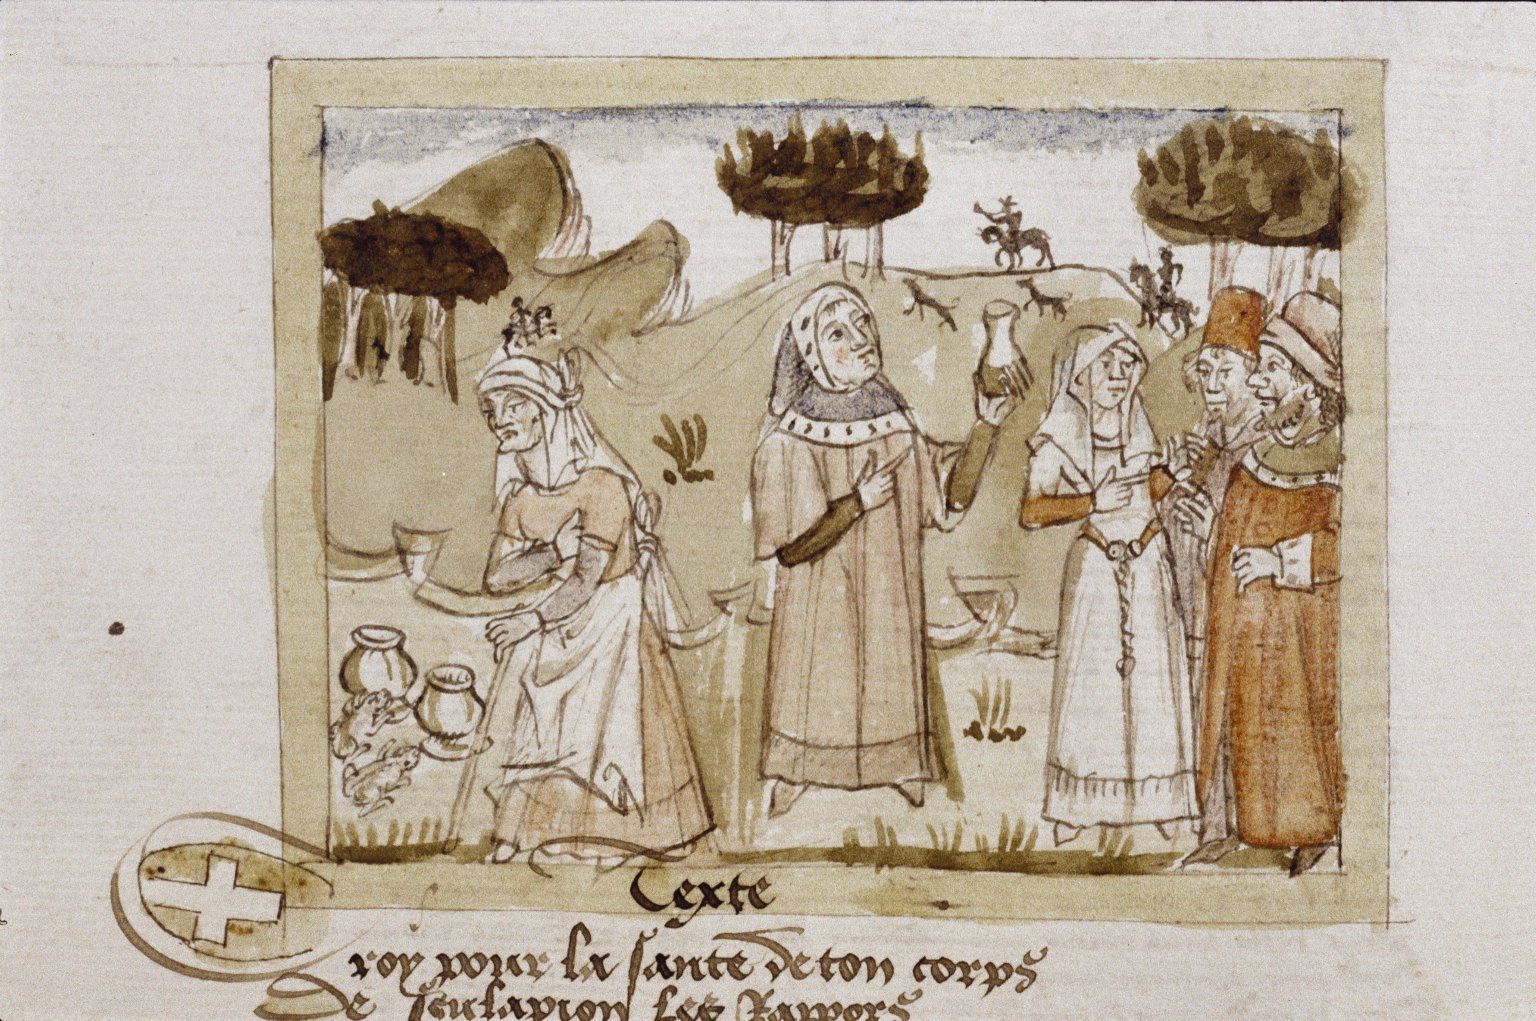 Texte
Croy pour la sante de ton corps
De sculapion les Rappors